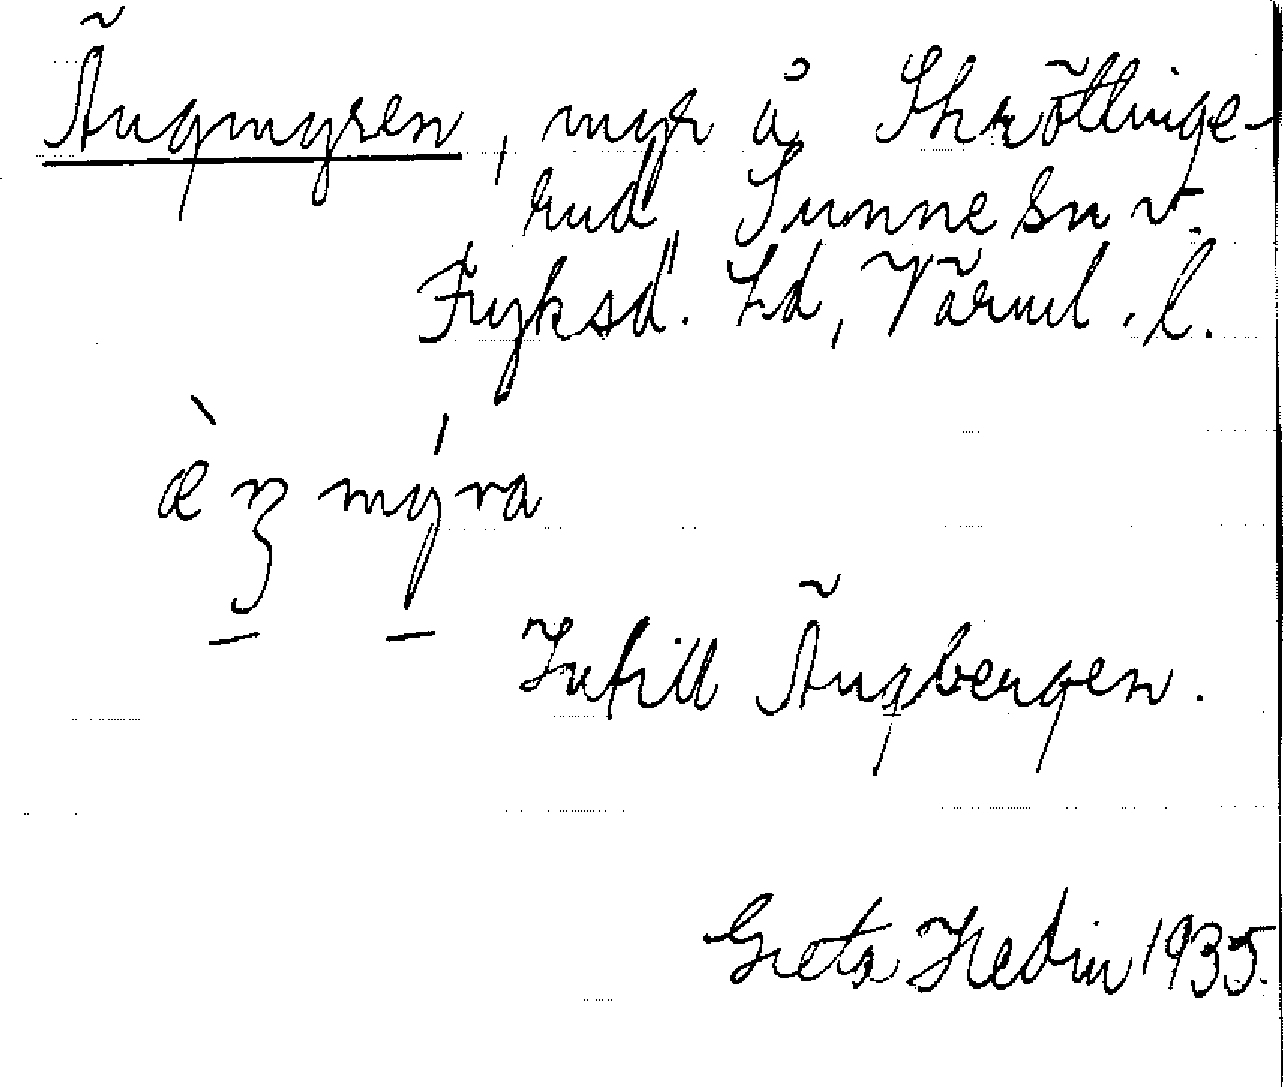 Ängmyren, myr å Skröttinge-
rud, Sunne sn v.
Fryksd. Hd, Värml. l.
æ̀ŋmýra
Intill Ängbergen.
Greta Hedin 1935.